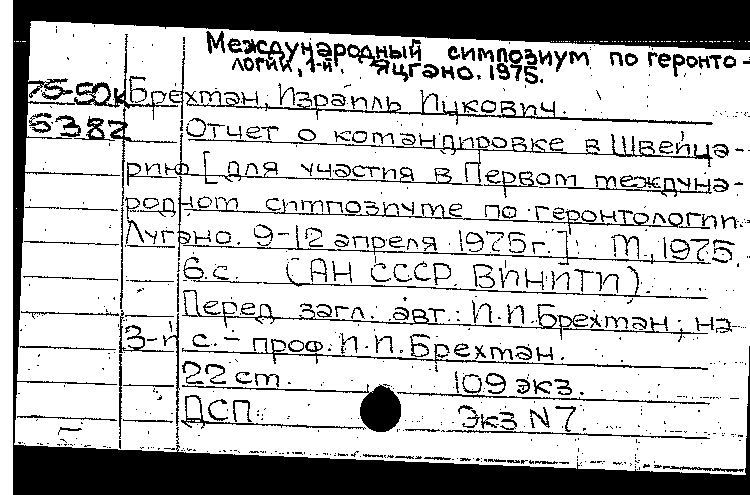 Международный симпозиум по геронто-
логии, 1-й. Яцгано. 1975.
75-50к Брехман, Израиль Ицкович.
6382 Отчет о командировке в Швейца-
рию [для участия в Первом междуна-
родном симпозиуме по геронтологии.
Лугано. 9-12 апреля 1975г.] М., 1975.
6 с. (АН СССР. ВИНИТИ).
Перед загл. авт.: И.И. Брехман; на
3-й с. - проф. И.И. Брехман.
22 см. 109 экз.
ДСП. Экз N 7.